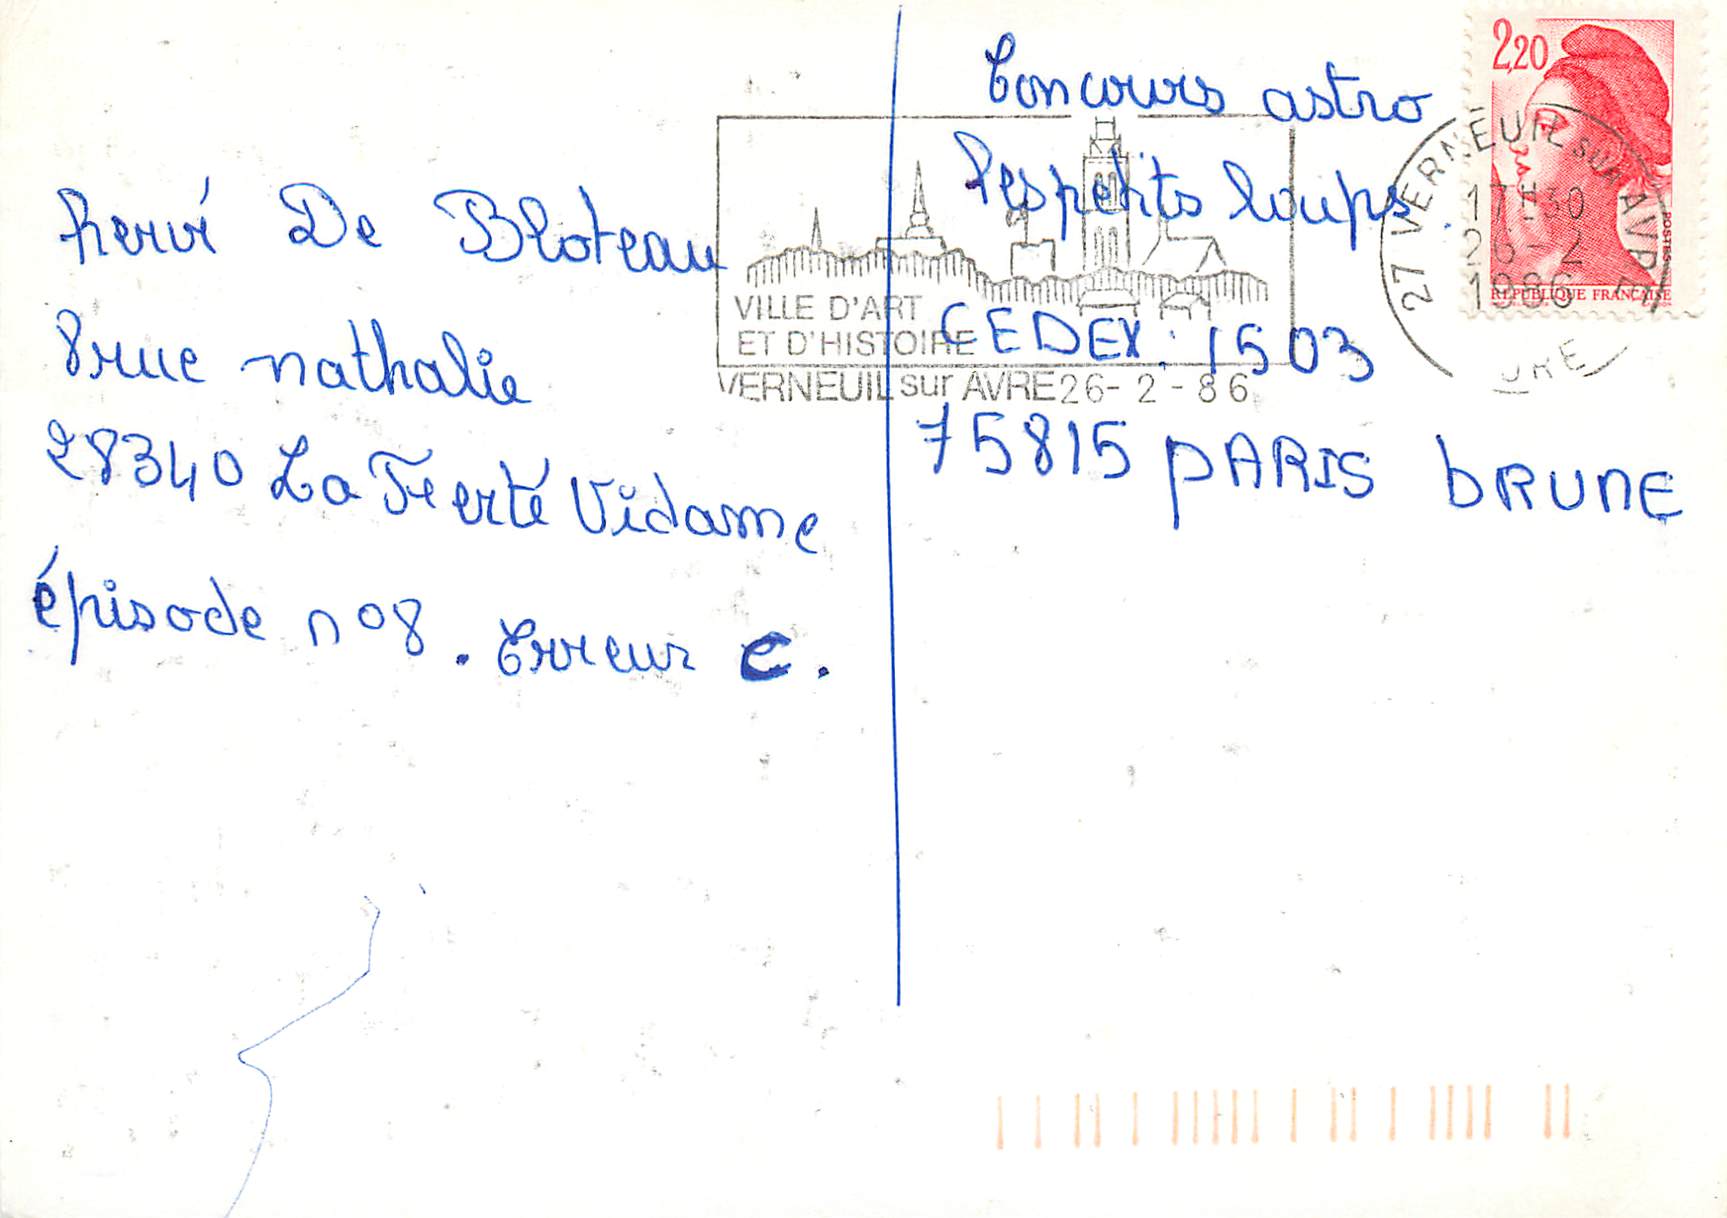 hervé De Bloteau
8 rue nathalie
28340 La Fierté Vidame
épisode n°8. Erreur c.
Concours astro
les petits loups.
CEDEX : 1503
75815 PARIS bRUNE
VILLE D'ART
ET D'HISTOIRE
VERNEUIL sur AVRE 26-2-86
2,20
POSTES
REPUBLIQUE FRANÇAISE
27 VERNEUIL SUR AVRE
17H30
26-2
1986
EURE